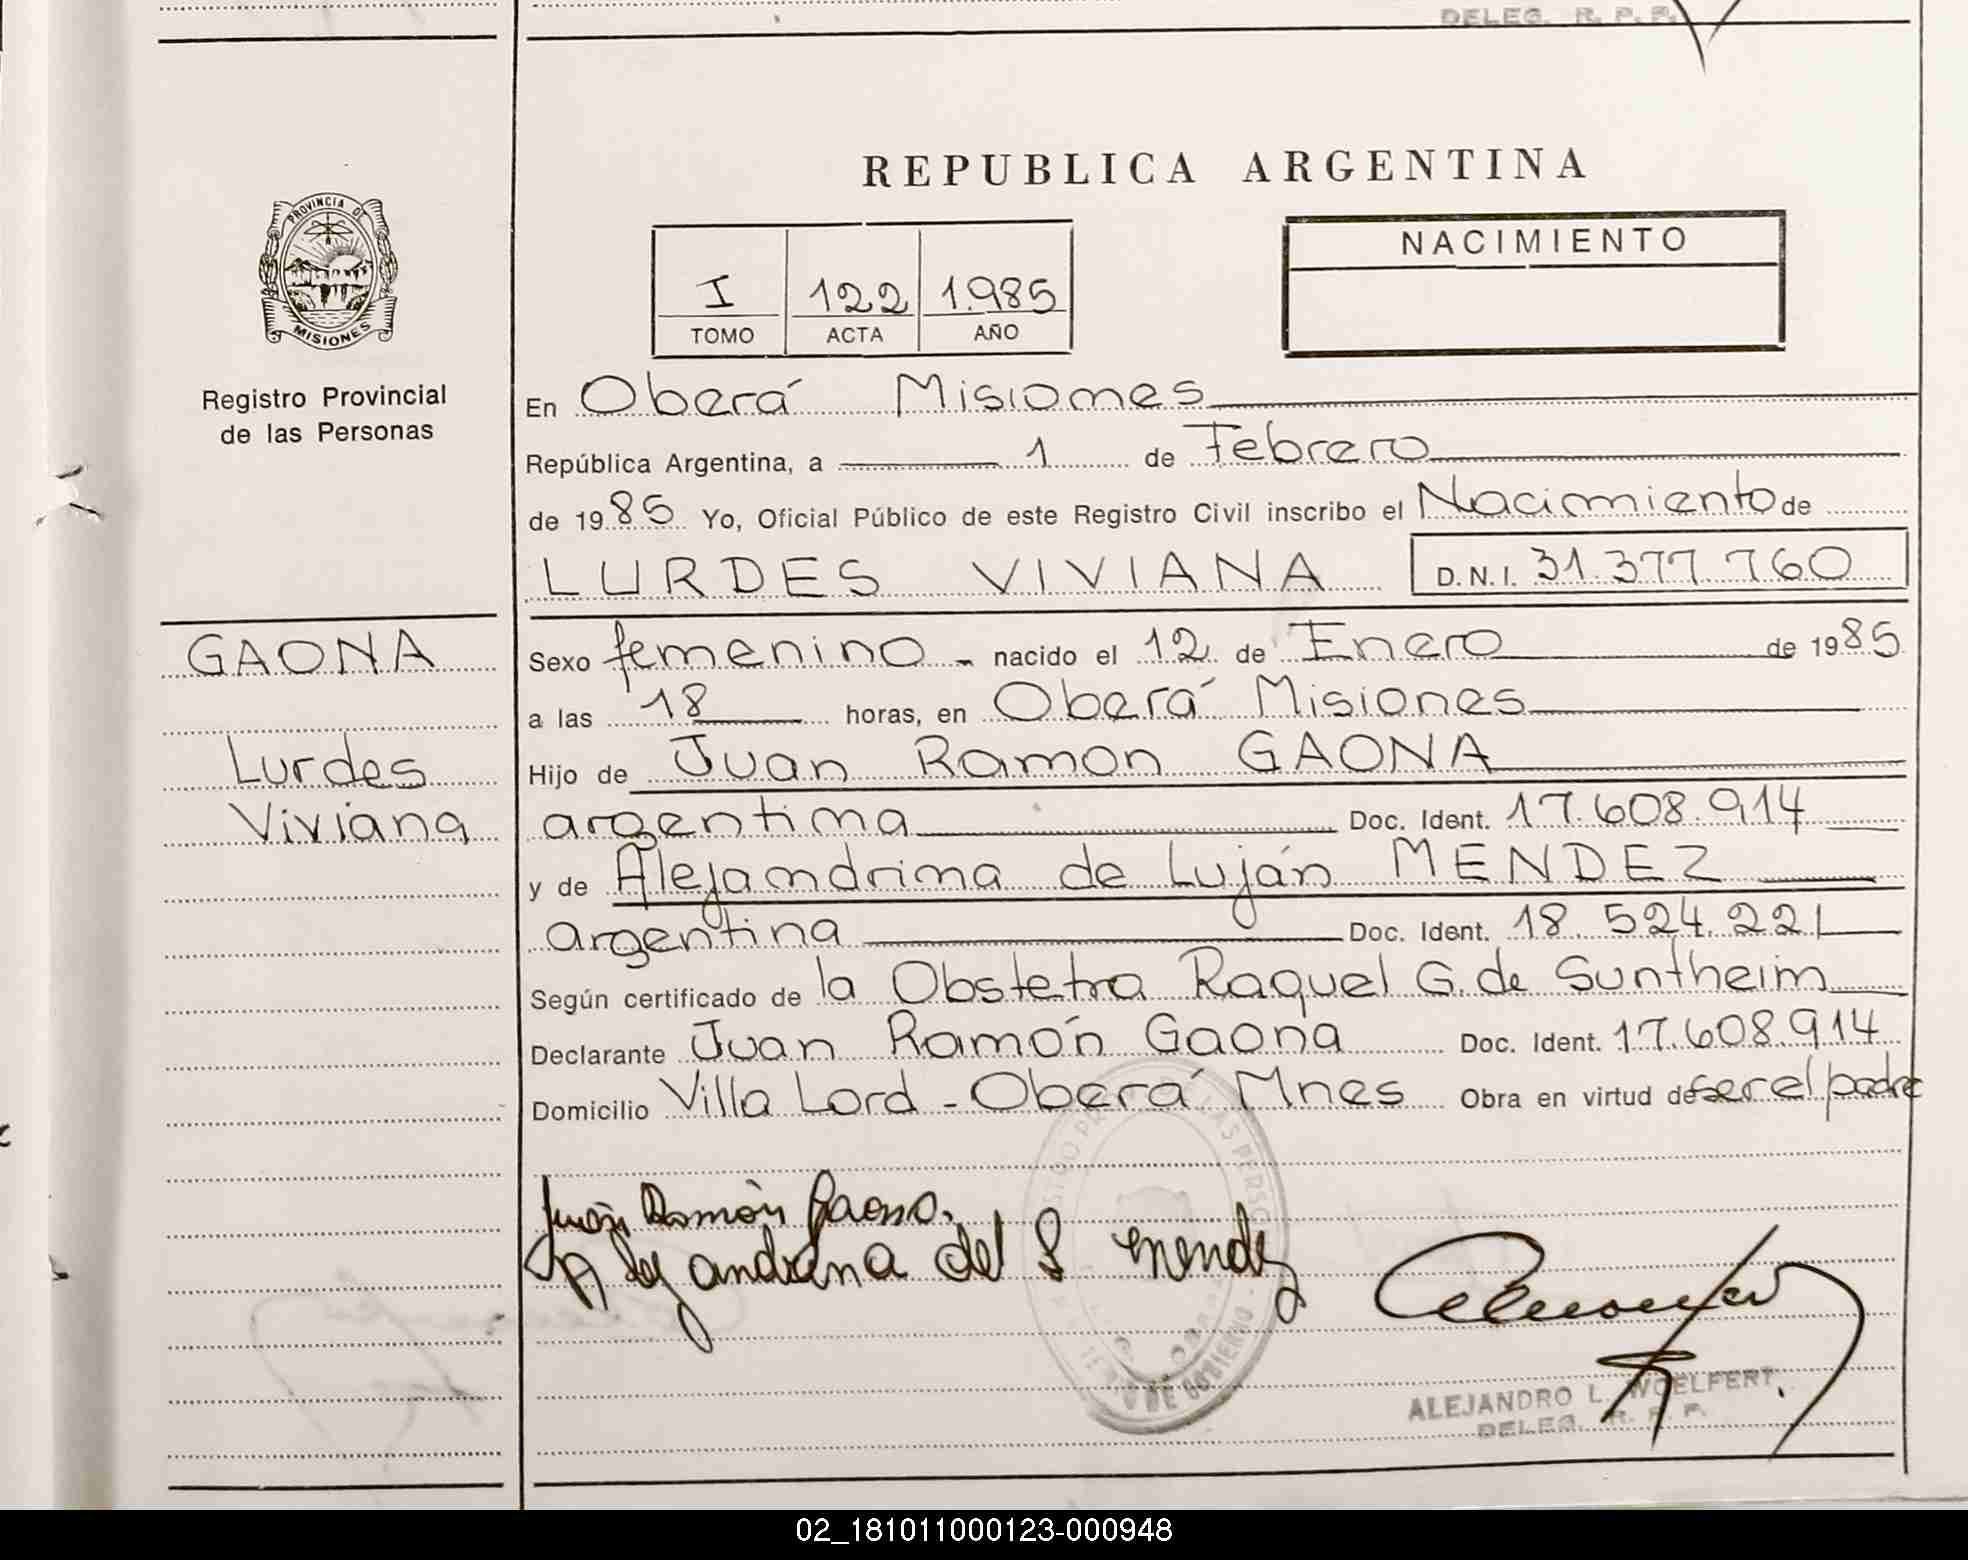 DELEG. R. P. P.
REPUBLICA ARGENTINA
PROVINCIA DE
MISIONES
NACIMIENTO
I 122 1.985
TOMO ACTA AÑO
Registro Provincial
de las Personas
En Oberá Misiones
República Argentina, a 1 de Febrero
de 1985 Yo, Oficial Público de este Registro Civil inscribo el Nacimiento de
LURDES VIVIANA D.N.I. 31.377.760
GAONA
Sexo femenino - nacido el 12 de Enero de 1985
a las 18 horas, en Oberá Misiones
Lurdes
Viviana
Hijo de Juan Ramon GAONA
argentina Doc. Ident. 17.608.914
y de Alejandrina de Luján MENDEZ
argentina Doc. Ident. 18.524.221
Según certificado de la Obstetra Raquel G. de Suntheim
Declarante Juan Ramón Gaona Doc. Ident. 17.608.914
Domicilio Villa Lord - Oberá Mnes Obra en virtud de ser el padre
Juan Ramón Gaona.
Alejandrina del L mendez
ALEJANDRO L. WOELFERT
DELEG. R. P. P.
02_181011000123-000948